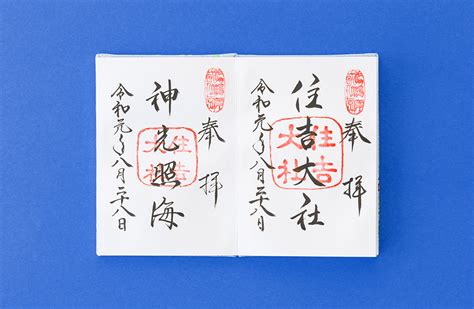 奉拝
住吉大社
住吉
大社
令和元年八月二十八日
奉拝
神光照海
住吉
大社
令和元年八月二十八日